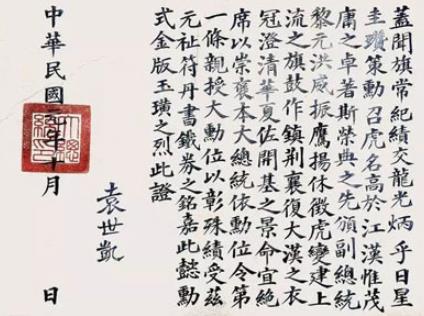 蓋聞旗常紀績交龍光炳乎日星
圭瓚策勳召虎名高於江漢惟茂
庸之卓著斯榮典之先頒副總統
黎元洪威振鷹揚休徵虎變建上
流之旗鼓作鎮荊襄復大漢之衣
冠澄清華夏佐開基之景命宜絶
席以崇褒本大總統依勳位令第
一條親授大勳位以彰殊績受茲
元祉符丹書鐵券之銘嘉此懿勳
式金版玉璜之烈此證
袁世凱
中華民國年十月 日